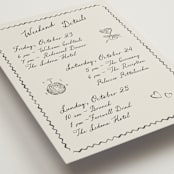 Weekend Details
Friday, October 23
6 pm - Welcome Cocktails
7 pm - Rehearsal Dinner
The Sedona Hotel
Saturday, October 24
5 pm - The Ceremony
6 pm - The Reception
Sunday, October 25
10 am - Brunch
1 pm - Farewell Drinks
The Sedona Hotel